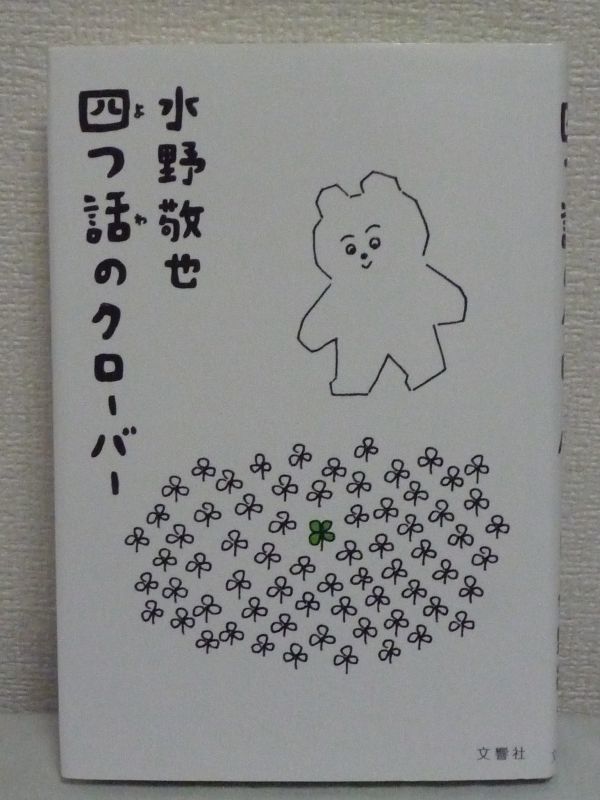 水野敬也
四つ話のクローバー
よ
わ
文響社